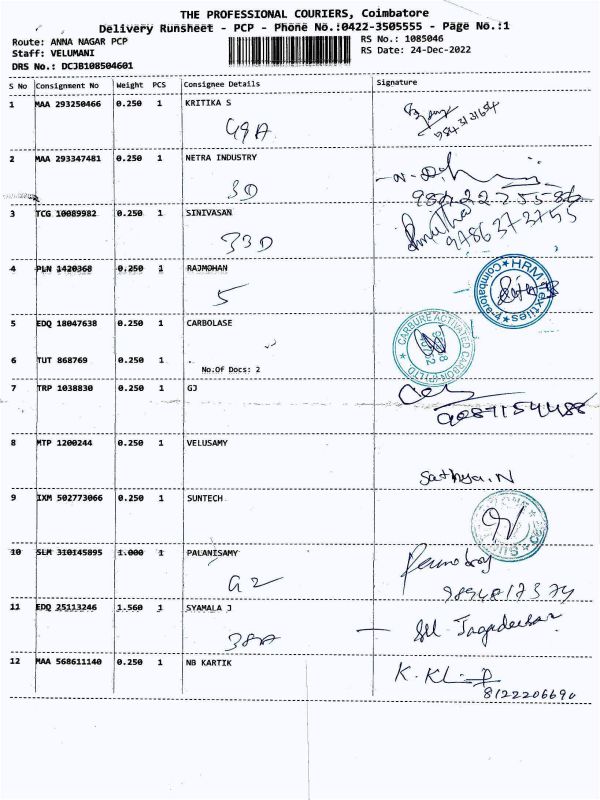 THE PROFESSIONAL COURIERS, Coimbatore
Delivery Runsheet - PCP - Phone No.:0422-3505555 - Page No.:1
Route: ANNA NAGAR PCP RS No.: 1085046
Staff: VELUMANI RS Date: 24-Dec-2022
DRS No.: DCJB108504601
S No Consignment No Weight PCS Consignee Details Signature
1 MAA 293250466 0.250 1 KRITIKA S
49A
2 MAA 293347481 0.250 1 NETRA INDUSTRY
3D
3 TCG 10089982 0.250 1 SINIVASAN
33D 9786373755
4 PLN 1420368 0.250 1 RAJMOHAN
5 HRM Textiles Coimbatore-4
5 EDQ 18047638 0.250 1 CARBOLASE
CARBURE ACTIVATED CARBON (P) LTD
6 TUT 868769 0.250 1 No.Of Docs: 2
7 TRP 1038830 0.250 1 GJ
9087154488
8 MTP 1200244 0.250 1 VELUSAMY
Sathya.N
9 IXM 502773066 0.250 1 SUNTECH
10 SLM 310145895 1.000 1 PALANISAMY
G2
11 EDQ 25113246 1.560 1 SYAMALA J
38A
12 MAA 568611140 0.250 1 NB KARTIK
8122206690